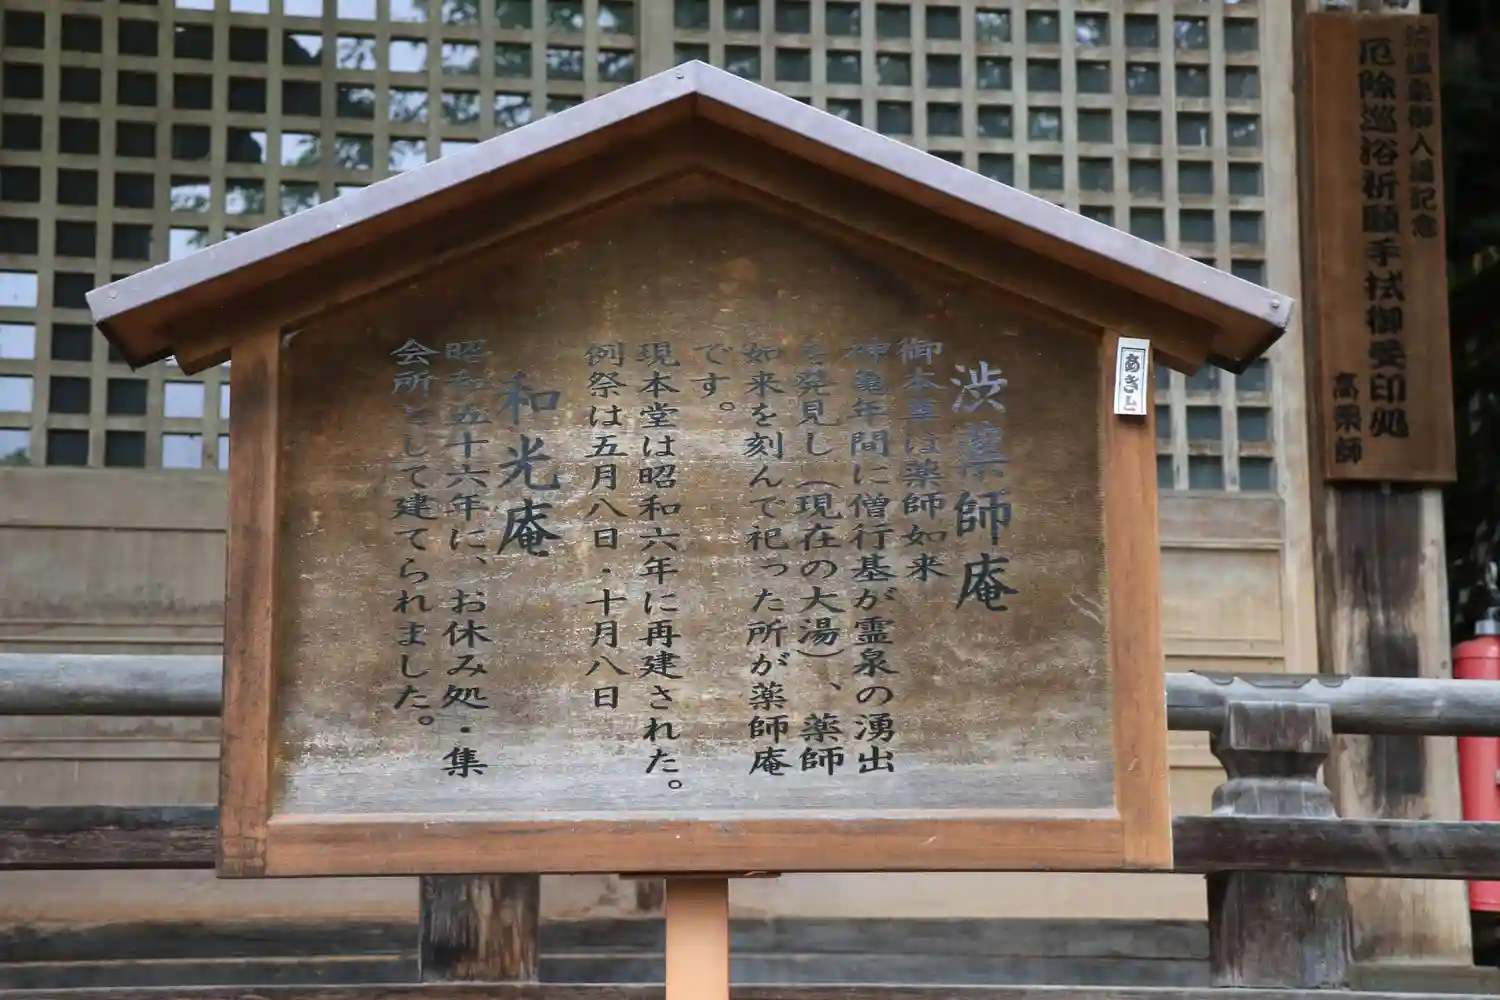 渋薬師庵
御本尊は薬師如来
神亀年間に僧行基が霊泉の湧出
を発見し(現在の大湯)、薬師
如来を刻んで祀った所が薬師庵
です。
現本堂は昭和六年に再建された。
例祭は五月八日・十月八日
和光庵
昭和五十六年に、お休み処・集
会所として建てられました。
あきと
厄除巡浴祈願手拭御受印処
高薬師